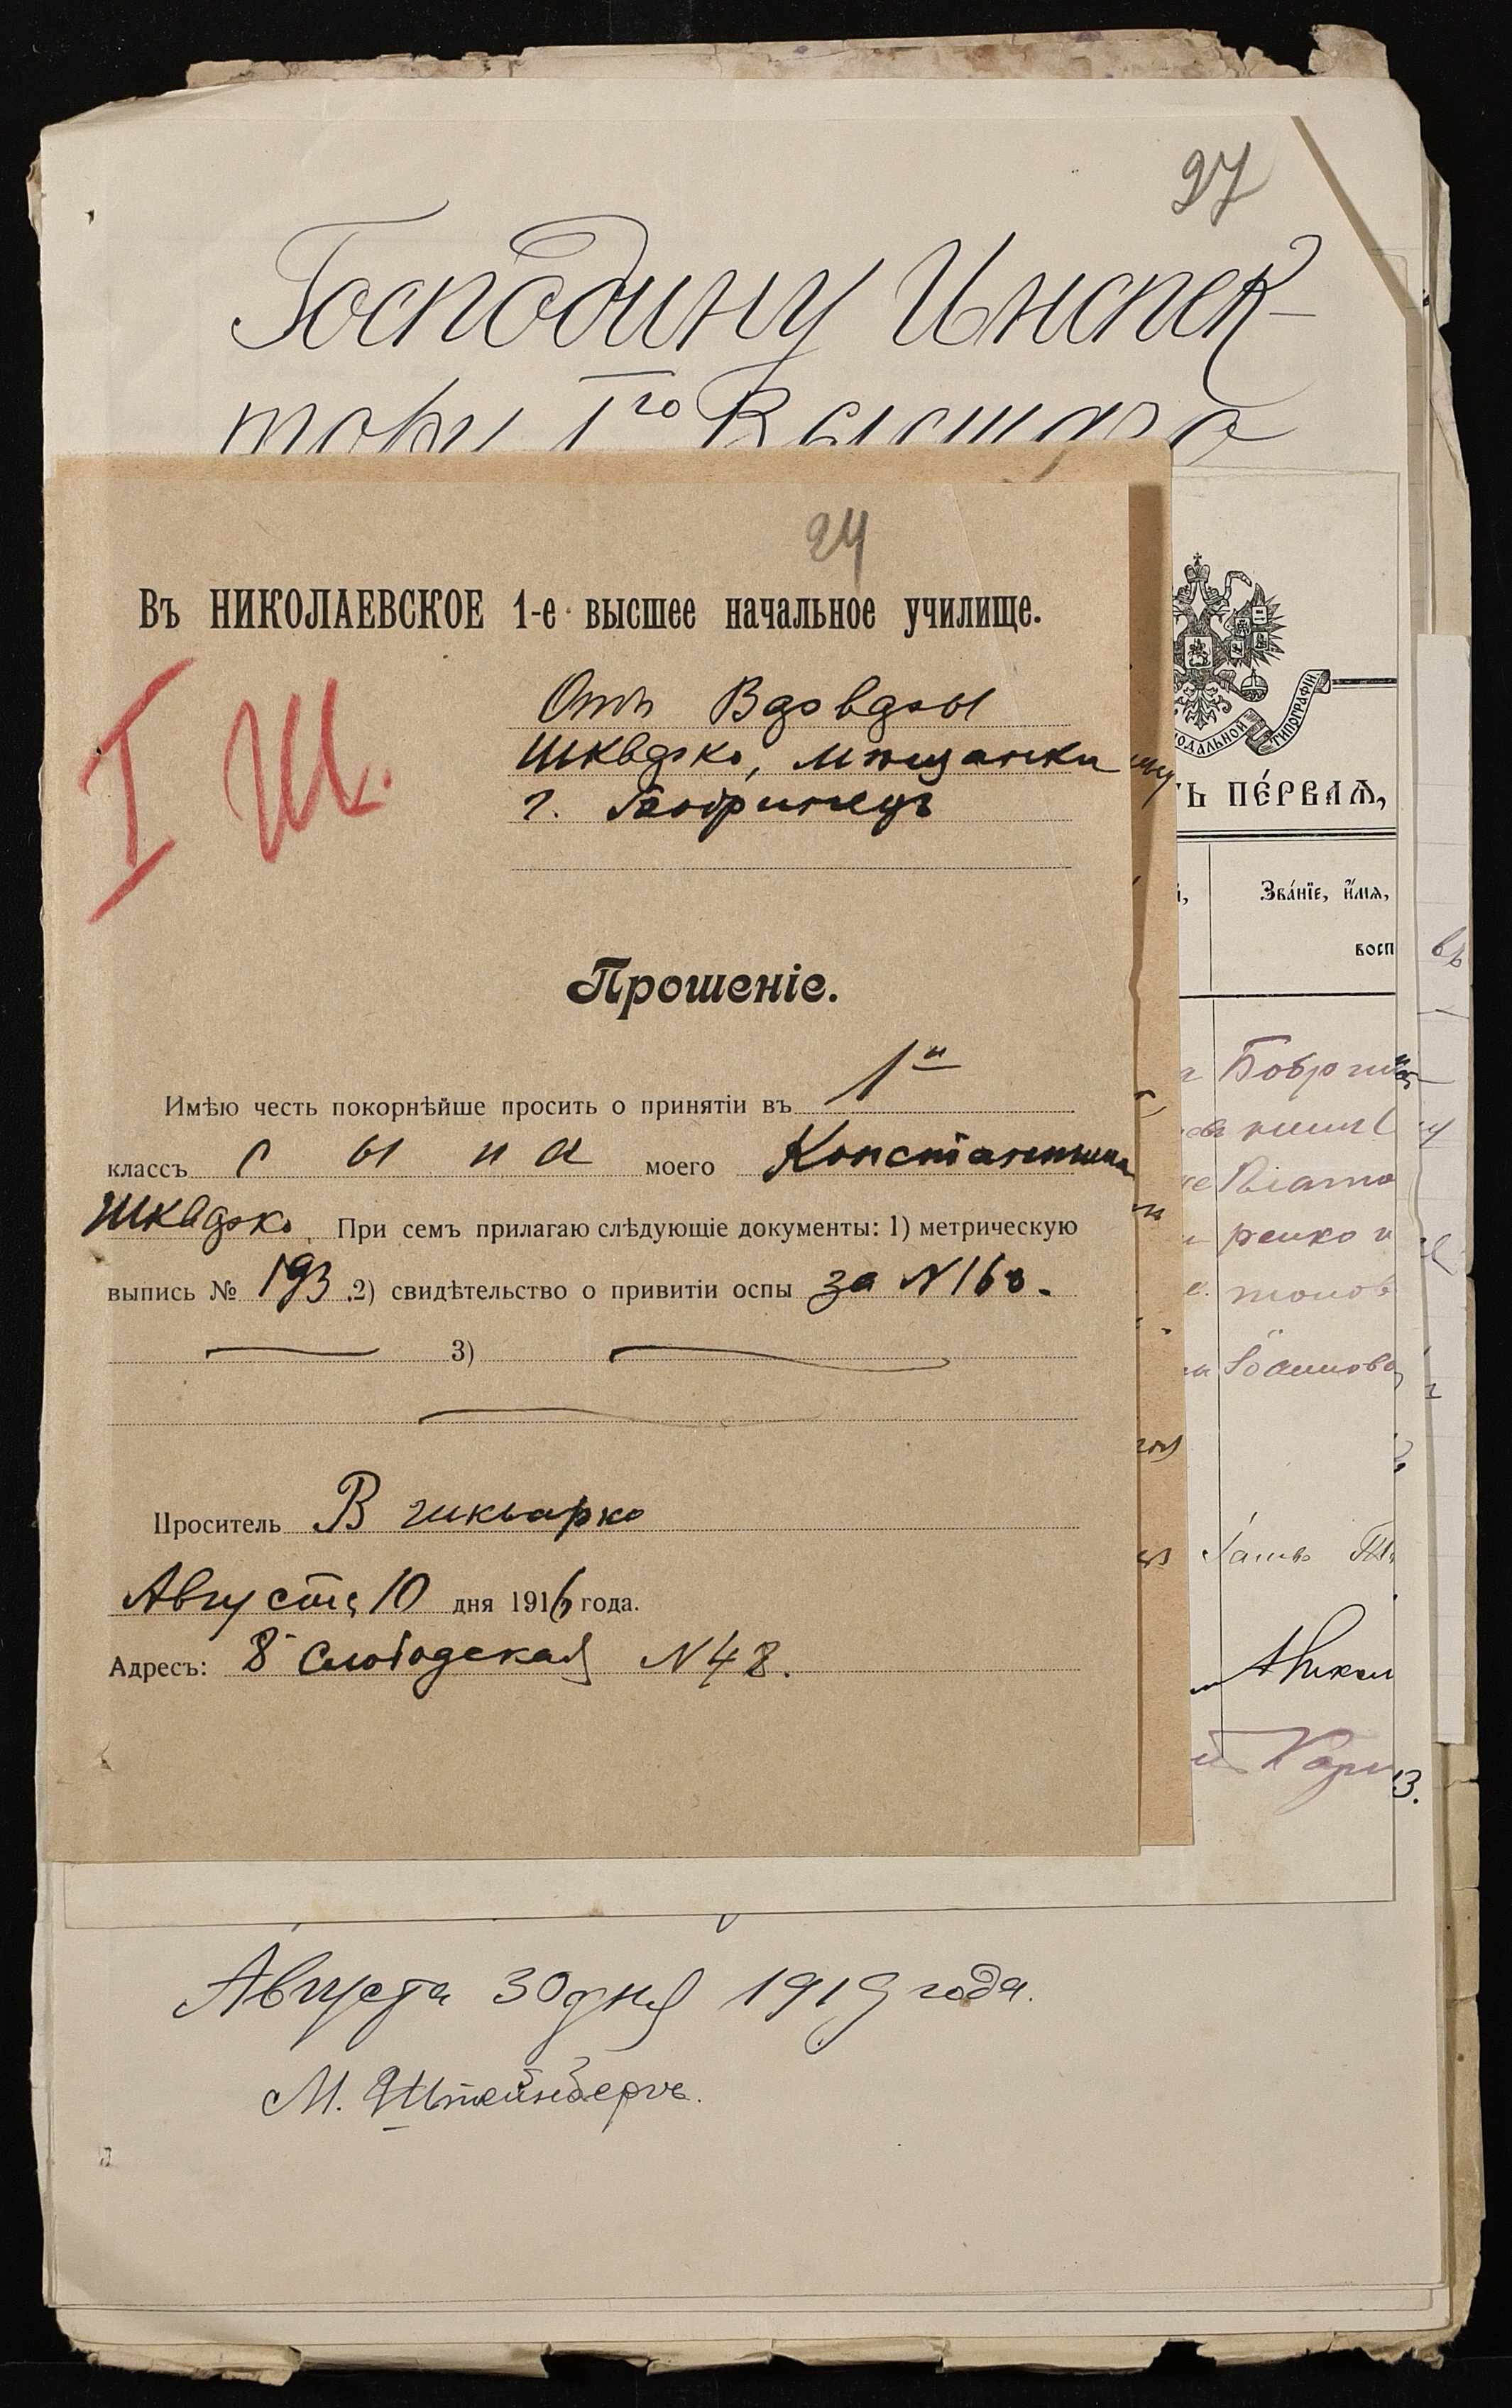 27
Господину Инспек-
тору 1го Высшаго
24
Въ НИКОЛАЕВСКОЕ 1-е высшее начальное училище.
I Ш.
Отъ Вдовы
Шкварко, мѣщанки
г. Бобринецъ
Прошеніе.
Имѣю честь покорнѣйше просить о принятіи въ 1й
классъ сына моего Константина
Шкварко. При семъ прилагаю слѣдующіе документы: 1) метрическую
выпись № 193 .2) свидѣтельство о привитіи оспы за N 160.
3)
Проситель В Шкварко
Августа 10 дня 1916 года.
Адресъ: 8 Слободская N 48.
СѴНОДАЛЬНОЙ ТИПОГРАФІИ
ПЕ́РВАѦ,
Зва́нїе, и҆́мѧ,
восп
Августа 30 дня 1919 года.
М. Штейнбергъ.